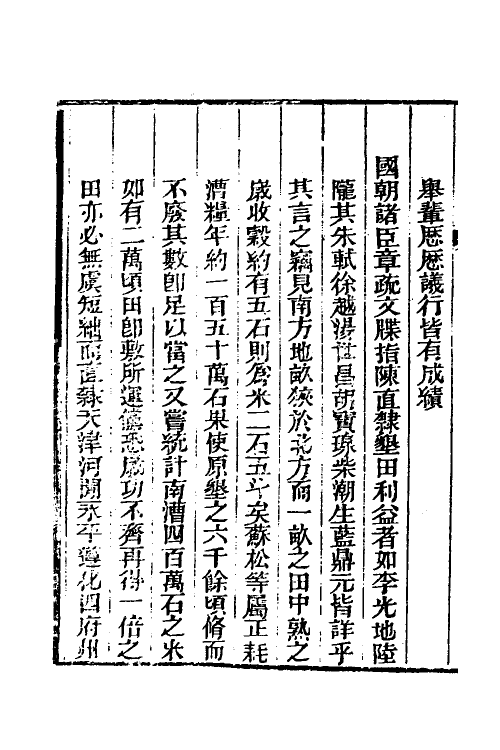 舉輩歷歷議行皆有成績
國朝諸臣章疏文牒指陳直隸墾田利益者如李光地陸
隴其朱軾徐越湯世昌胡寶瑔柴潮生藍鼎元皆詳乎
其言之竊見南方地畝狹於北方而一畝之田中熟之
歲收穀約有五石則爲米二石五斗矣蘇松等屬正耗
漕糧年約一百五十萬石果使原墾之六千餘頃脩而
不廢其數卽足以當之又嘗統計南漕四百萬石之米
如有二萬頃田卽敷所運儻恐歲功不齊再得一倍之
田亦必無虞短絀而直隸天津河間永平遵化四府州